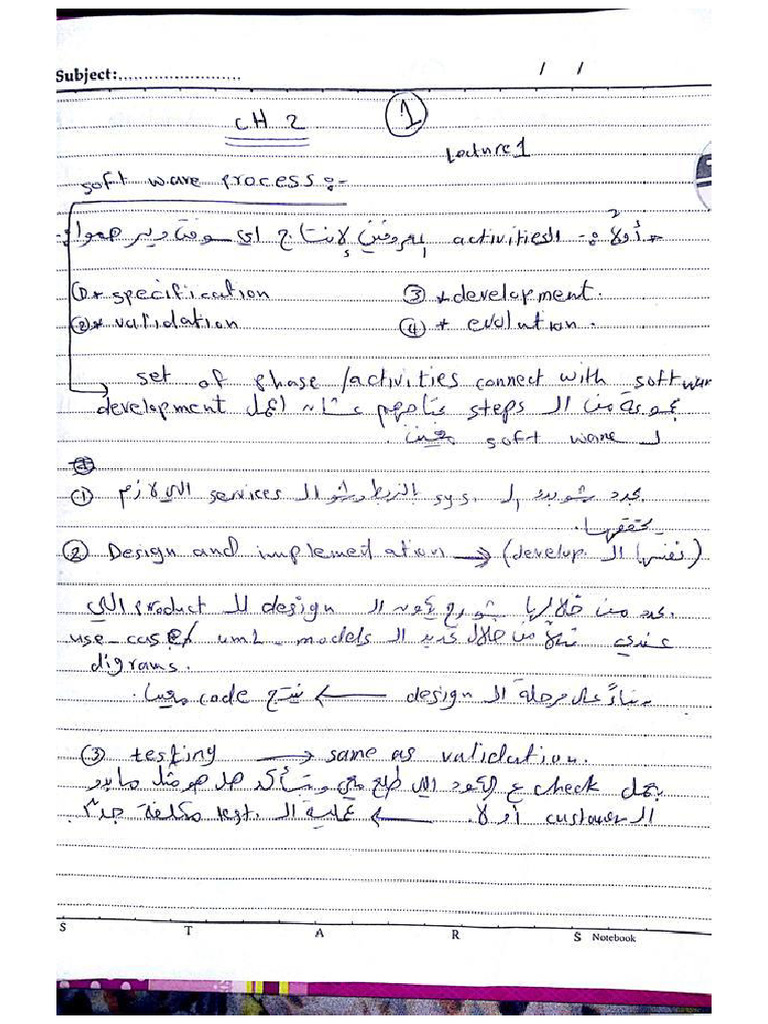 Subject:........................ / /
CH 2
1
Lecture 1
soft ware process :-
* أولاً :- الـ activities المعروفين لإنتاج اي سوفت وير هموا :-
① * specification ③ * development.
② * validation ④ * evolution.
set of phase /activities connect with soft war
development مجموعة من الـ steps عشان اعمل
لـ soft ware معين.
① بحدد شو بده الـ sys. بالزبط وشو الـ services اللي لازم
يحققها.
② Design and implement ation → (develop. نفسها الـ)
بحدد من خلالها شو رح يكون الـ design للـ product اللي
عندي مثلاً من خلال تحديد الـ use_case/ uml_models
digrams.
بناءً على مرحلة الـ design ← ينتج code معين.
③ testing → same as validation.
بعمل check ع الكود اللي طلع معي وبتأكد هل هو مثل ما بدو
الـ customer أو لا. ← عملية الـ test. مكلفة جداً.
S T A R S Notebook